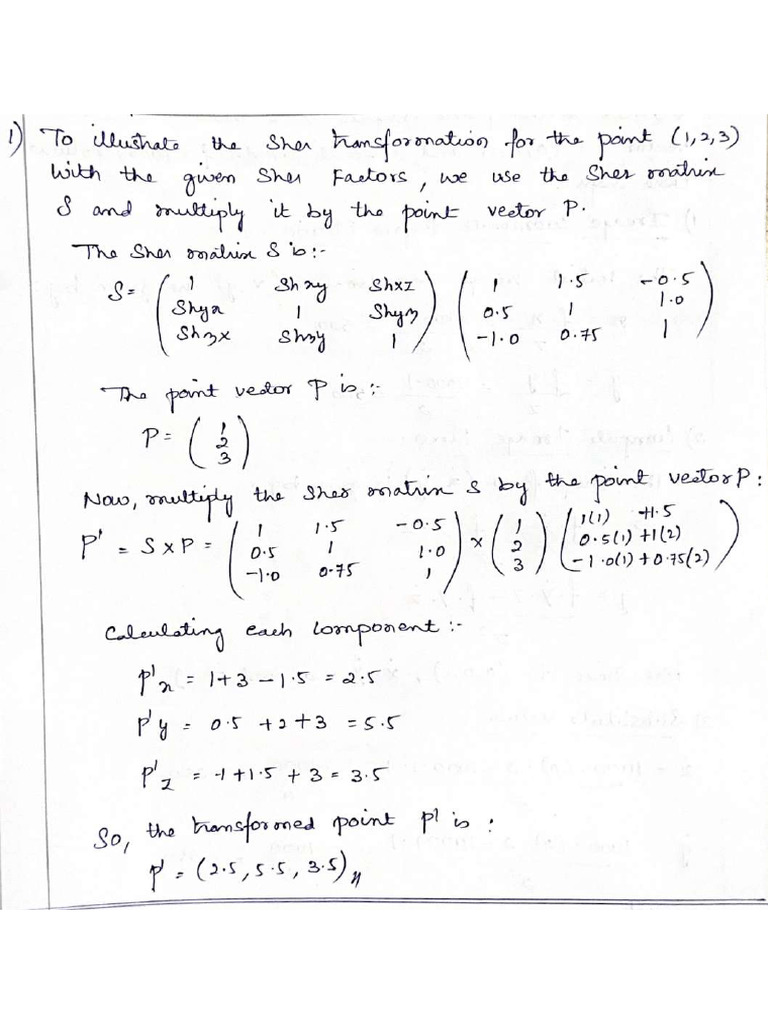 1) To illustrate the Sher transformation for the point (1,2,3)
With the given Sher Factors, we use the Sher matrix
S and multiply it by the point vector P.
The Sher matrix S is:-
S= ( 1 Shxy Shxz ) ( 1 1.5 -0.5 )
( Shyx 1 Shyz ) ( 0.5 1 1.0 )
( Shzx Shzy 1 ) ( -1.0 0.75 1 )
The point vector P is:-
P = ( 1 )
( 2 )
( 3 )
Now, multiply the Sher matrix S by the point vector P:
P' = S x P = ( 1 1.5 -0.5 ) x ( 1 ) ( 1(1) +1.5 )
( 0.5 1 1.0 ) ( 2 ) ( 0.5(1) +1(2) )
( -1.0 0.75 1 ) ( 3 ) ( -1.0(1) + 0.75(2) )
Calculating each component:-
P'x = 1+3-1.5 = 2.5
P'y = 0.5 +2+3 = 5.5
P'z = -1+1.5+3 = 3.5
So, the transformed point P' is:
P' = (2.5, 5.5, 3.5)